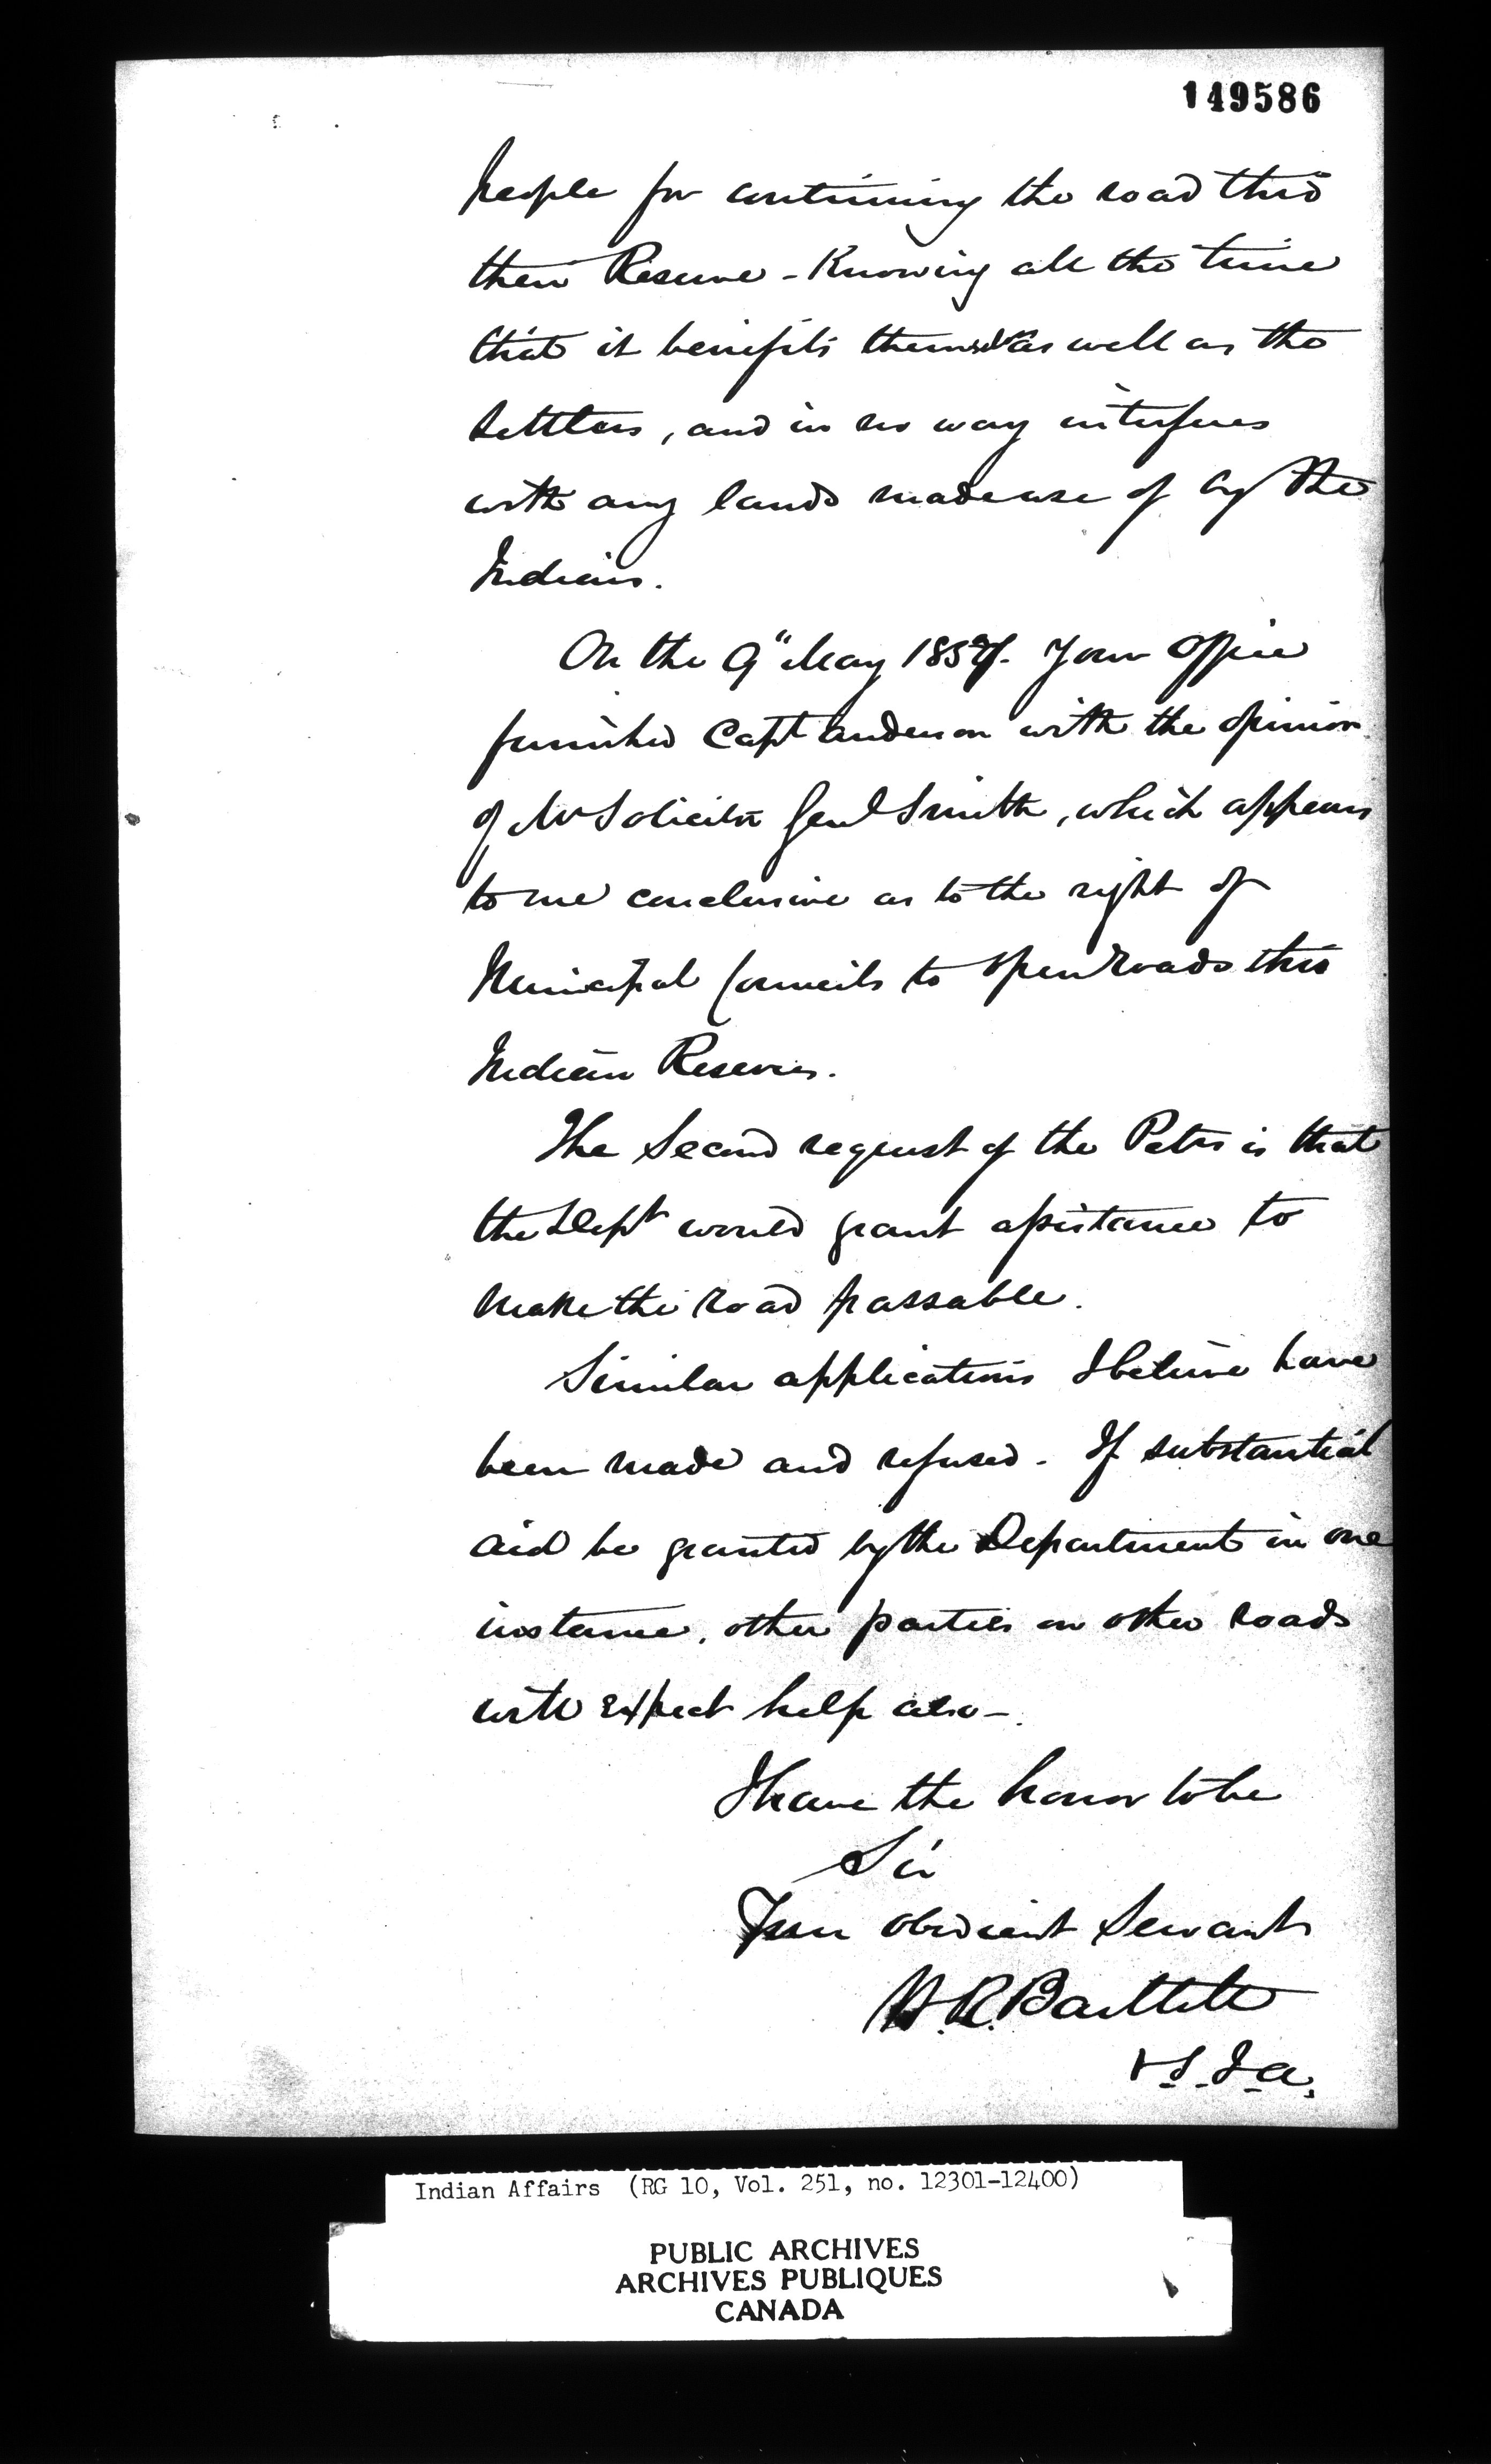 149586
people for continuing the road thro
their Reserve - Knowing all the time
that it benefits themselves as well as the
Settlers, and in no way interferes
with any lands made use of by the
Indians.
On the 9" May 1857. Your Office
furnished Capt Anderson with the opinion
of Mr Solicitor Genl Smith, which appears
to me conclusive as to the right of
Municipal Councils to open roads thro
Indian Reserves.
The Second request of the Petrs is that
the Dept would grant assistance to
make the road passable.
Similar applications I believe have
been made and refused - If substantial
aid be granted by the Department in one
instance, other parties on other roads
will expect help also -.
I have the honor to be
Sir
Your obedient Servant
W. R. Bartlett
V.S.I.A.
Indian Affairs (RG 10, Vol. 251, no. 12301-12400)
PUBLIC ARCHIVES
ARCHIVES PUBLIQUES
CANADA